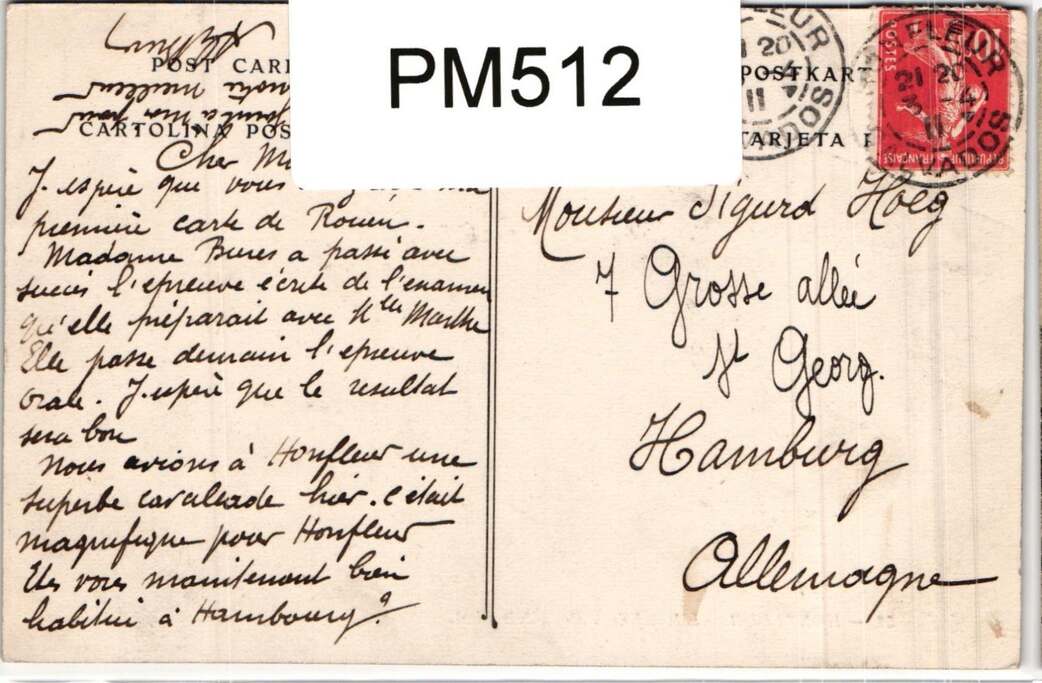 PM512
POST CAR
POSTKART
CARTOLINA POS
TARJETA
Cher
J'espère que vous
première carte de Rouen.
Madame Bures a passé avec
succès l'épreuve écrite de l'examen
qu'elle préparait avec Mlle Marthe
Elle passe demain l'épreuve
orale. J'espère que le resultat
sera bon
Nous avions à Honfleur une
superbe cavalcade hier. c'était
magnifique pour Honfleur
Etes vous maintenant bien
habitué à Hambourg?
meilleur
Monsieur Sigurd Hoeg
7 Grosse allée
St Georg.
Hamburg
Allemagne
10
POSTES
REPUBLIQUE FRANÇAISE
HONFLEUR
21 20
4
11
CALVADOS
FLEUR
20
4
11
VADOS